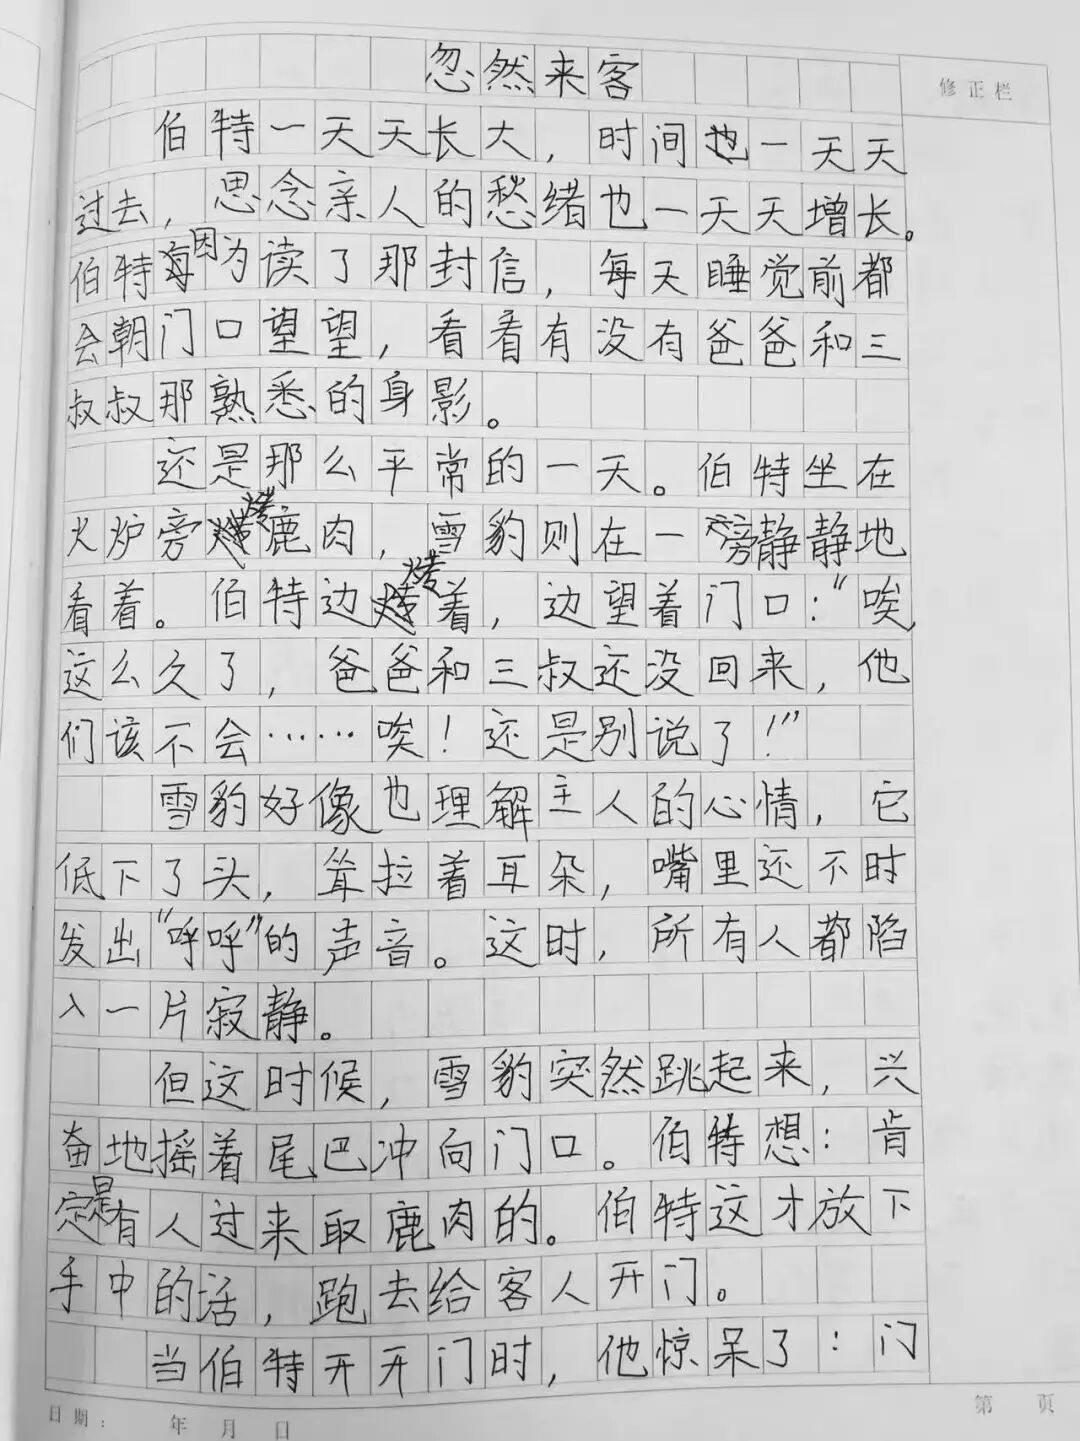 忽然来客
修正栏
伯特一天天长大，时间也一天天
过去，思念亲人的愁绪也一天天增长。
伯特因为读了那封信，每天睡觉前都
会朝门口望望，看看有没有爸爸和三
叔叔那熟悉的身影。
还是那么平常的一天。伯特坐在
火炉旁烤鹿肉，雪豹则在一旁静静地
看着。伯特边烤着，边望着门口：“唉，
这么久了，爸爸和三叔还没回来，他
们该不会……唉！还是别说了！”
雪豹好像也理解主人的心情，它
低下了头，耸拉着耳朵，嘴里还不时
发出“呼呼”的声音。这时，所有人都陷
入一片寂静。
但这时候，雪豹突然跳起来，兴
奋地摇着尾巴冲向门口。伯特想：肯
定是有人过来取鹿肉的。伯特这才放下
手中的活，跑去给客人开门。
当伯特开开门时，他惊呆了：门
日期： 年 月 日
第 页